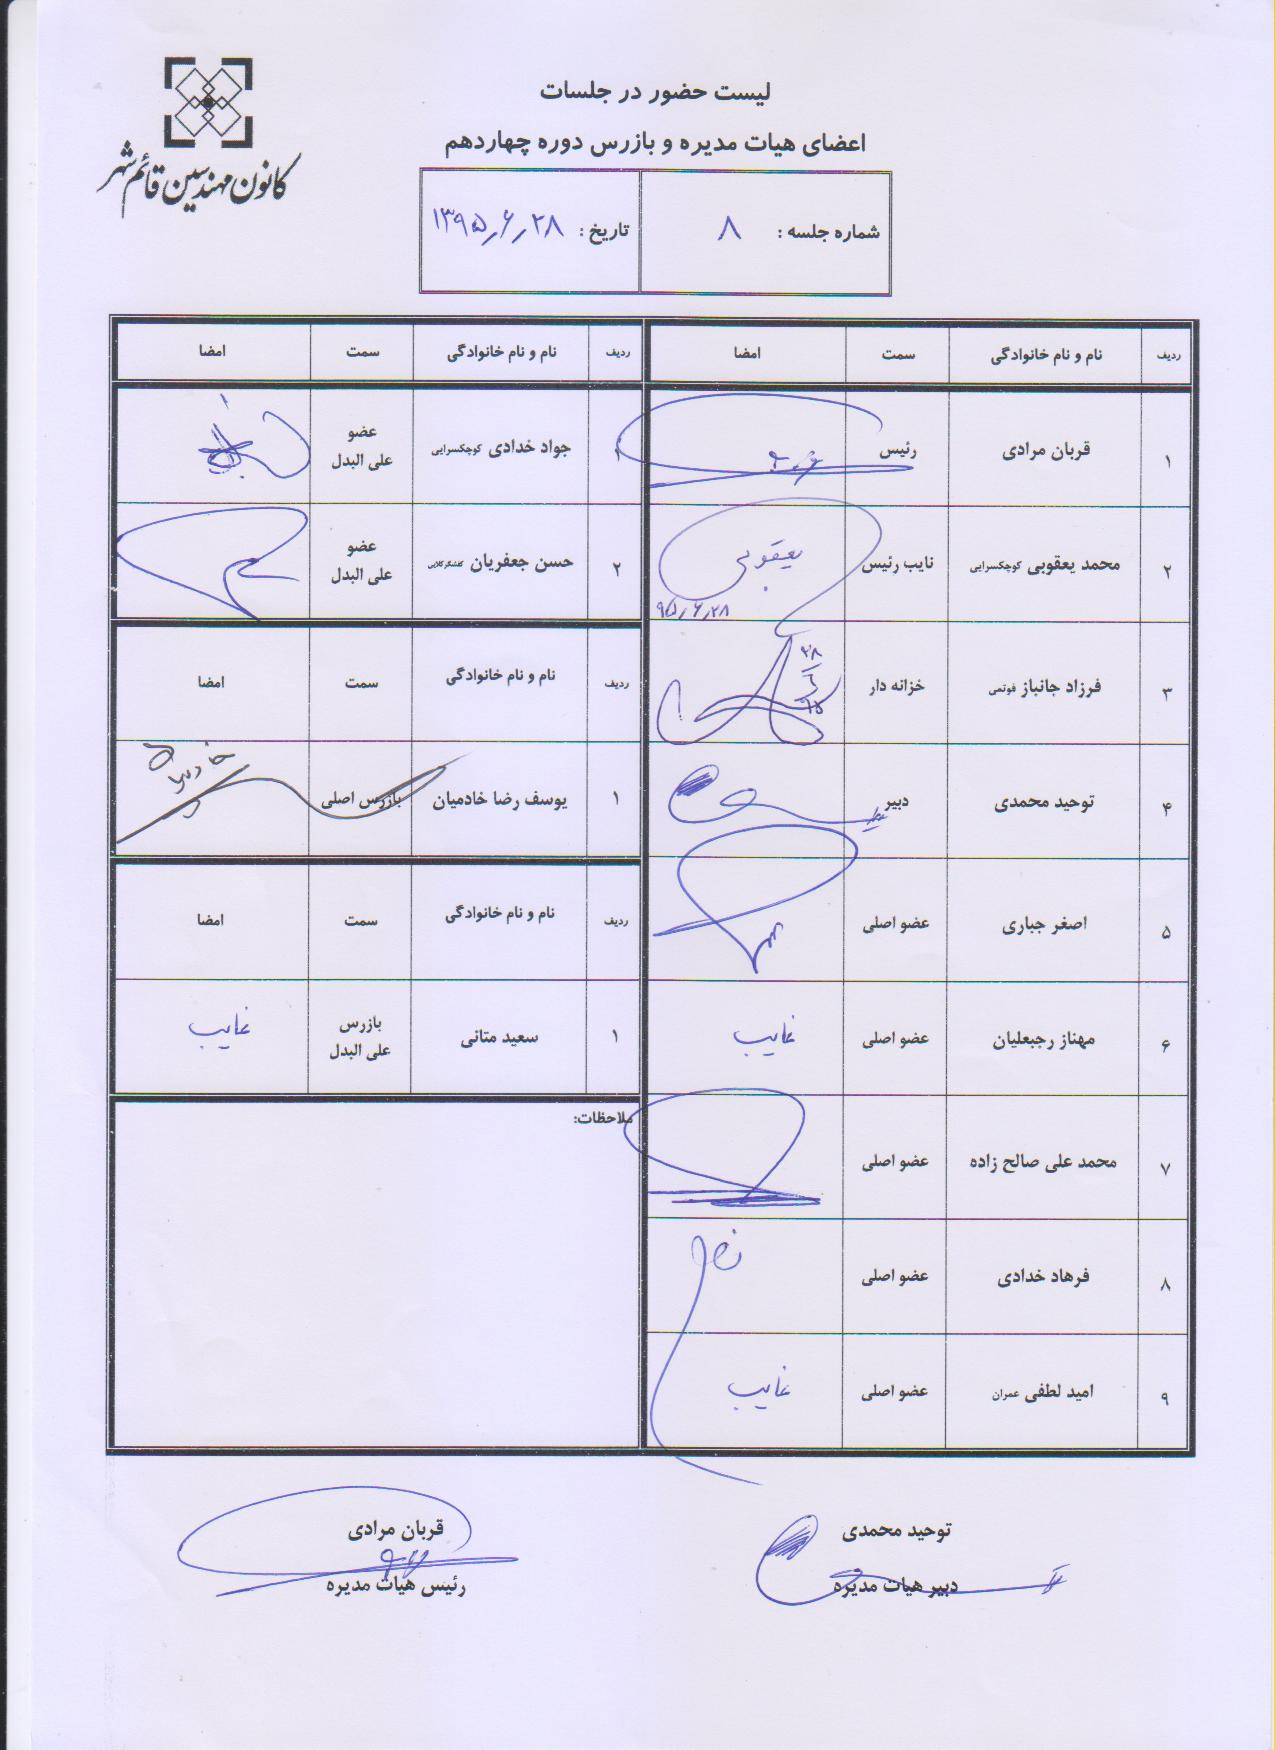 کانون مهندسین قائم‌شهر
لیست حضور در جلسات
اعضای هیات مدیره و بازرس دوره چهاردهم
شماره جلسه : ۸ تاریخ : ۱۳۹۵/۶/۲۸
ردیف نام و نام خانوادگی سمت امضا
۱ قربان مرادی رئیس
۲ محمد یعقوبی کوچکسرایی نایب رئیس یعقوبی
۹۵/۶/۲۸
۳ فرزاد جانباز فوتمی خزانه دار ۲۸/۶/۹۵
۴ توحید محمدی دبیر
۵ اصغر جباری عضو اصلی
۶ مهناز رجبعلیان عضو اصلی غایب
۷ محمد علی صالح زاده عضو اصلی
۸ فرهاد خدادی عضو اصلی
۹ امید لطفی عمران عضو اصلی غایب
ردیف نام و نام خانوادگی سمت امضا
۱ جواد خدادی کوچکسرایی عضو
علی البدل
۲ حسن جعفریان کفشگرکلایی عضو
علی البدل
ردیف نام و نام خانوادگی سمت امضا
۱ یوسف رضا خادمیان بازرس اصلی
ردیف نام و نام خانوادگی سمت امضا
۱ سعید متانی بازرس
علی البدل غایب
ملاحظات:
توحید محمدی
دبیر هیات مدیره
قربان مرادی
رئیس هیات مدیره